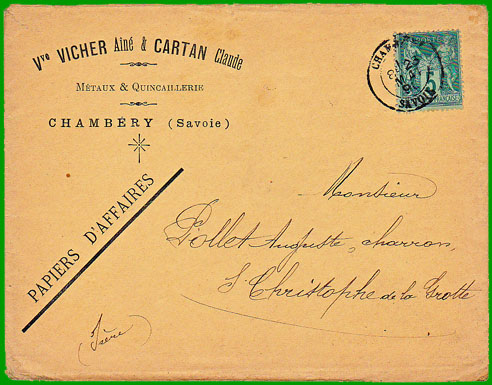 Vve VICHER Aîné & CARTAN Claude
MÉTAUX & QUINCAILLERIE
CHAMBÉRY (Savoie)
PAPIERS D'AFFAIRES
SAVOIE
5
Monsieur
Pollet Auguste, charron,
St Christophe de la Grotte
(Isère)